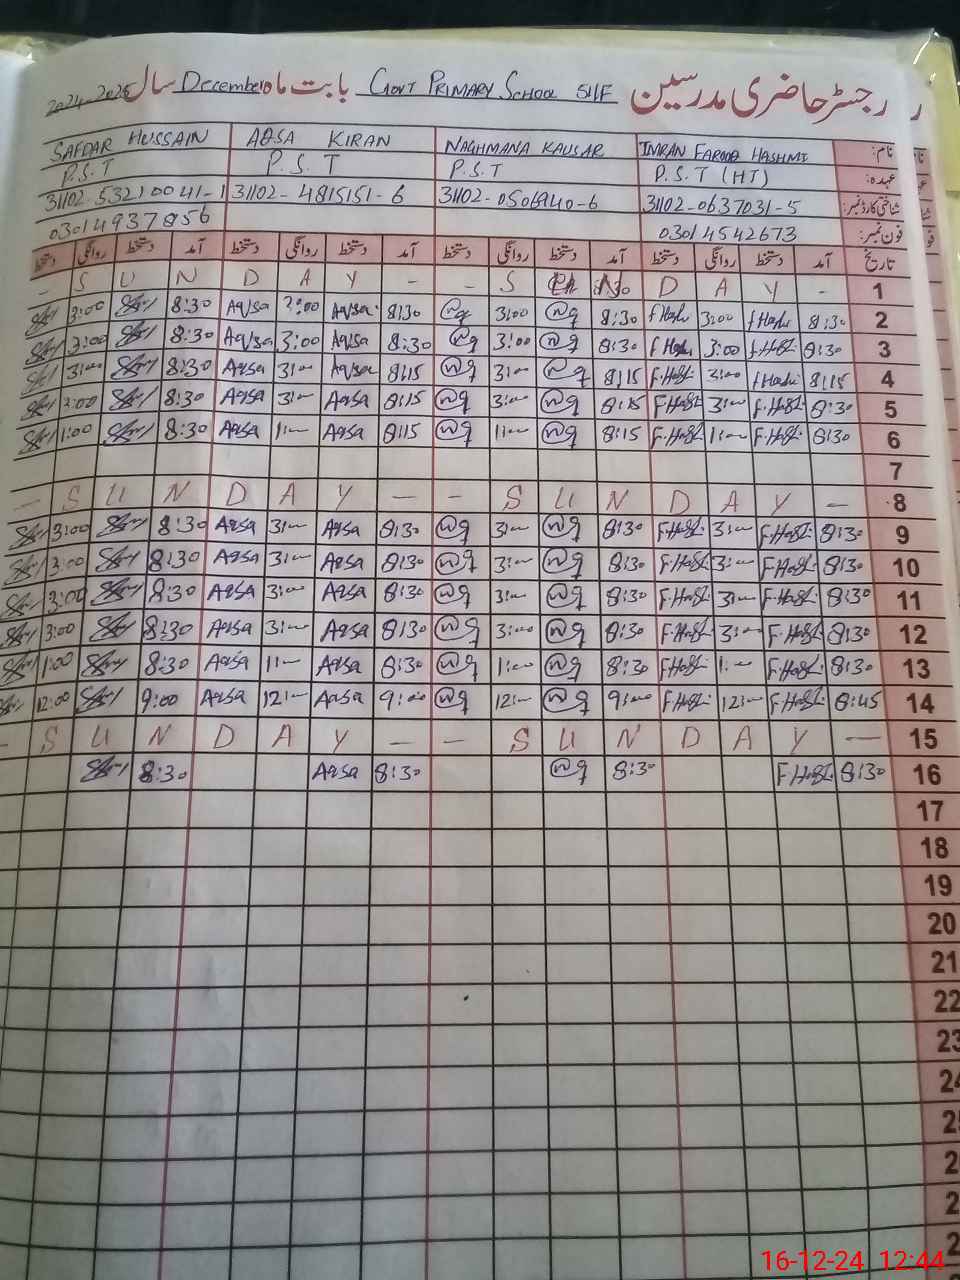 رجسٹر حاضری مدرسین GOVT PRIMARY SCHOOL 51/F بابت ماہ December سال 2024-2025
نام: IMRAN FAROOQ HASHMI NAGHMANA KAUSAR AQSA KIRAN SAFDAR HUSSAIN
عہدہ: P.S.T (HT) P.S.T P.S.T P.S.T
شناختی کارڈ نمبر: 31102-0637031-5 31102-0506940-6 31102-4815151-6 31102-53210041-1
فون نمبر: 03014542673 03014937856
تاریخ آمد دستخط روانگی دستخط آمد دستخط روانگی دستخط آمد دستخط روانگی دستخط آمد دستخط روانگی دستخط
1 - S U N D A Y - - S U N D A Y -
2 8:30 f Hashi 3:00 f Hashi 8:30 3:00 8:30 Aqsa 3:00 Aqsa 8:30 3:00
3 8:30 f.Hashi 3:00 f Hashi 8:30 3:00 8:30 Aqsa 3:00 Aqsa 8:30 3:00
4 8:15 f Hashi 3:00 F.Hashi 8:15 3:00 8:15 Aqsa 3:00 Aqsa 8:30 3:00
5 8:30 F.Hashi 3:00 F.Hashi 8:15 3:00 8:15 Aqsa 3:00 Aqsa 8:30 3:00
6 8:30 F.Hashi 1:00 F.Hashi 8:15 1:00 8:15 Aqsa 1:00 Aqsa 8:30 1:00
7
8 - S U N D A Y - - S U N D A Y -
9 8:30 F.Hashi 3:00 F.Hashi 8:30 3:00 8:30 Aqsa 3:00 Aqsa 8:30 3:00
10 8:30 F.Hashi 3:00 F.Hashi 8:30 3:00 8:30 Aqsa 3:00 Aqsa 8:30 3:00
11 8:30 F.Hashi 3:00 F.Hashi 8:30 3:00 8:30 Aqsa 3:00 Aqsa 8:30 3:00
12 8:30 F.Hashi 3:00 F.Hashi 8:30 3:00 8:30 Aqsa 3:00 Aqsa 8:30 3:00
13 8:30 F.Hashi 1:00 F.Hashi 8:30 1:00 8:30 Aqsa 1:00 Aqsa 8:30 1:00
14 8:45 F.Hashi 12:00 F.Hashi 9:00 12:00 9:00 Aqsa 12:00 Aqsa 9:00 12:00
15 - S U N D A Y - - S U N D A Y -
16 8:30 F.Hashi 8:30 8:30 Aqsa 8:30
17
18
19
20
21
22
23
24
16-12-24 12:44